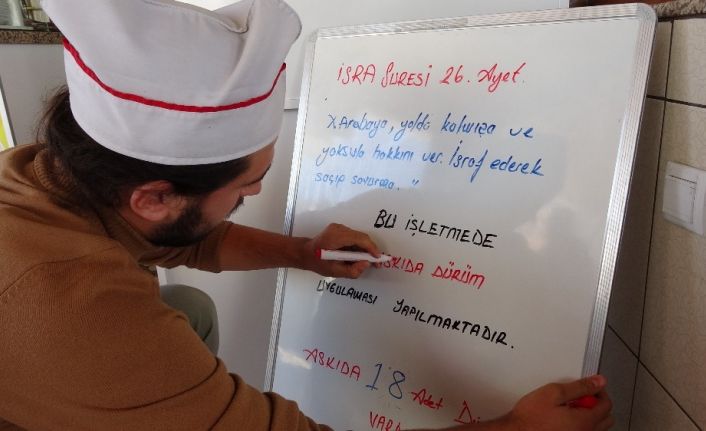 İSRA SURESİ 26. Ayet.
"Arabaya, yolda kalmışa ve
yoksula hakkını ver. İsraf ederek
saçıp savurma."
BU İŞLETMEDE
ASKIDA DÜRÜM
UYGULAMASI YAPILMAKTADIR.
ASKIDA 18 Adet